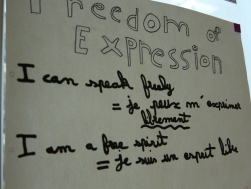 Freedom of
Expression
I can speak freely
= je peux m'exprimer
librement
I am a free spirit
= je suis un esprit libre